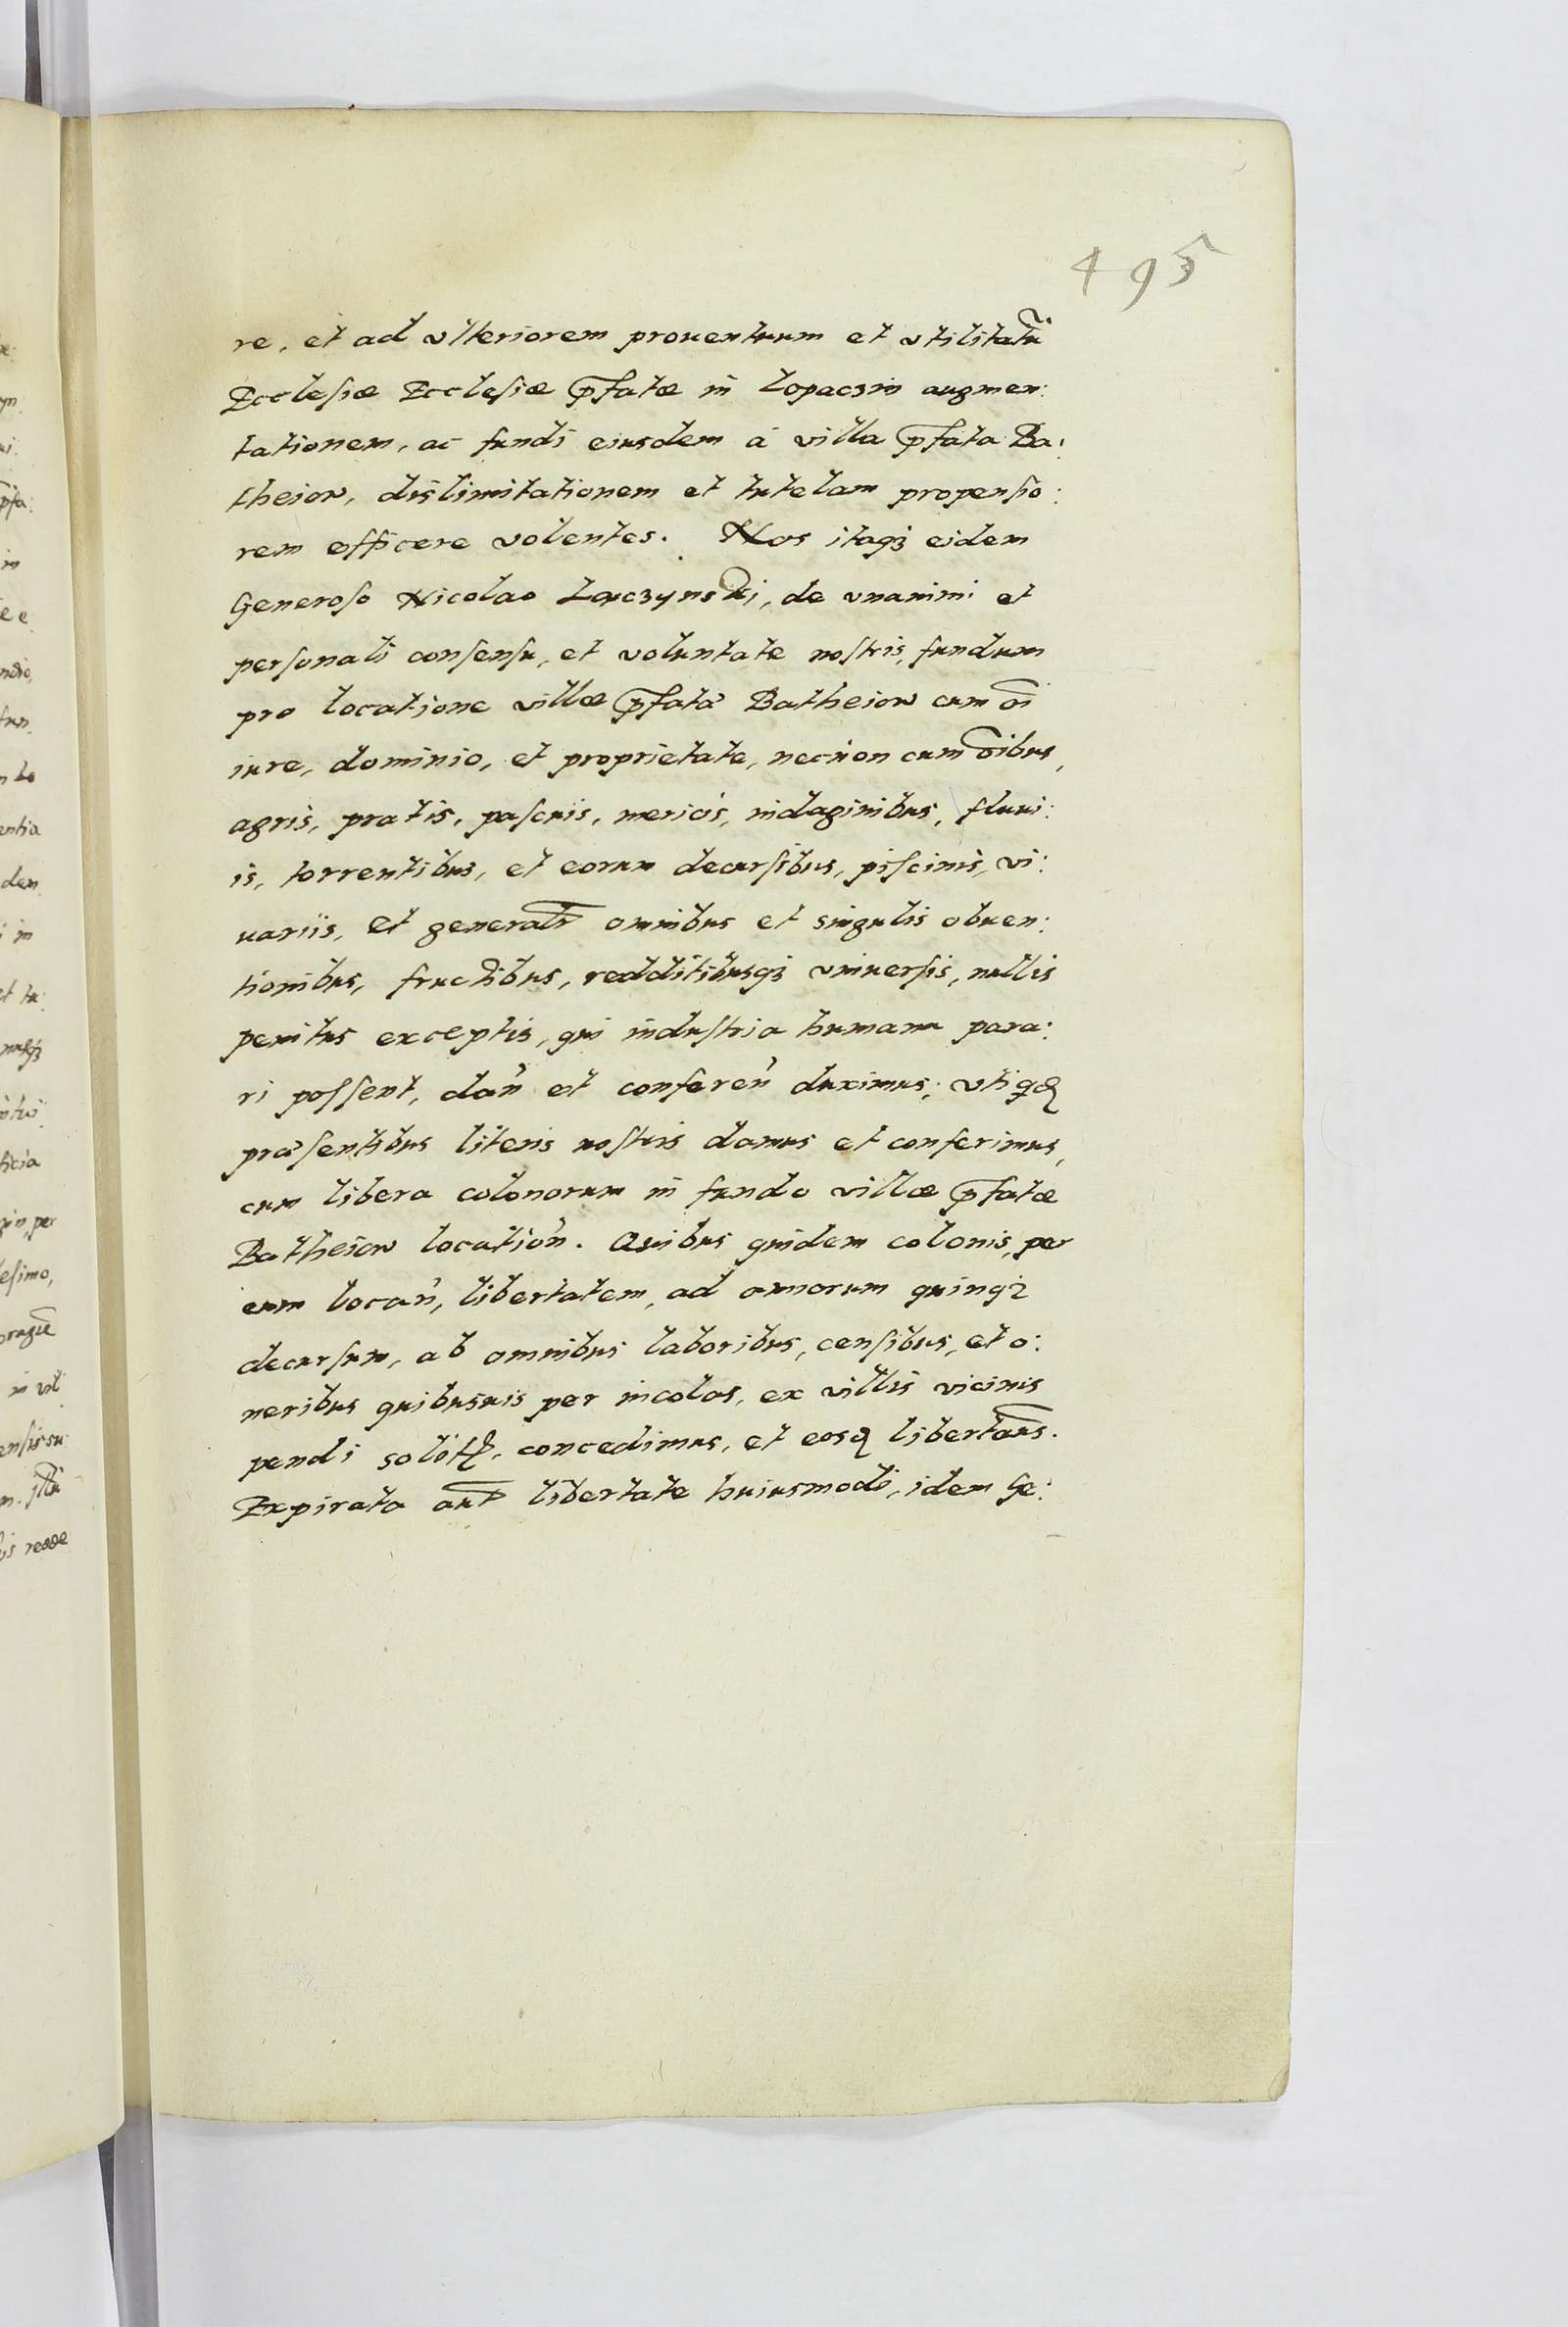 495
re, et ad vlteriorem prouentuum et vtilitatũ
Ecclesiæ Ecclesiæ p̃fatæ in Lopaczin augmen:
tationem, ac fundi eiusdem á villa p̃fata Ba:
theiow, dislimitationem et tutelam propensio:
rem efficere volentes. Nos itaqꝫ eidem
Generoso Nicolao Laczynski, de vnanimi et
personali consensu, et voluntate nostris, fundum
pro locatione villæ p̃fatæ Batheiow cum õi
iure, dominio, et proprietate, necnon cum õibus,
agris, pratis, pascuis, mericis, indaginibus, fluui:
is, torrentibus, et eorum decursibus, piscinis, vi:
uariis, et generalr̃ omnibus et singulis obuen:
tionibus, fructibus, redditibusqꝫ vniuersis, nullis
penitus exceptis, qui industria humana para:
ri possent, dan̄ et conferen̄ duximus; vtiqꝫ
præsentibus literis nostris damus et conferimus,
cum libera colonorum in fundo villæ p̃fatæ
Batheiow location̄. Quibus quidem colonis, per
eum locan̄, libertatem, ad annorum quinqꝫ
decursum, ab omnibus laboribus, censibus, et o:
neribus quibusuis per incolas, ex villis vicinis
pendi solitꝭ, concedimus, et eosqꝫ libertam̃s.
Expirata aut̃ libertate huiusmodi, idem Ge: